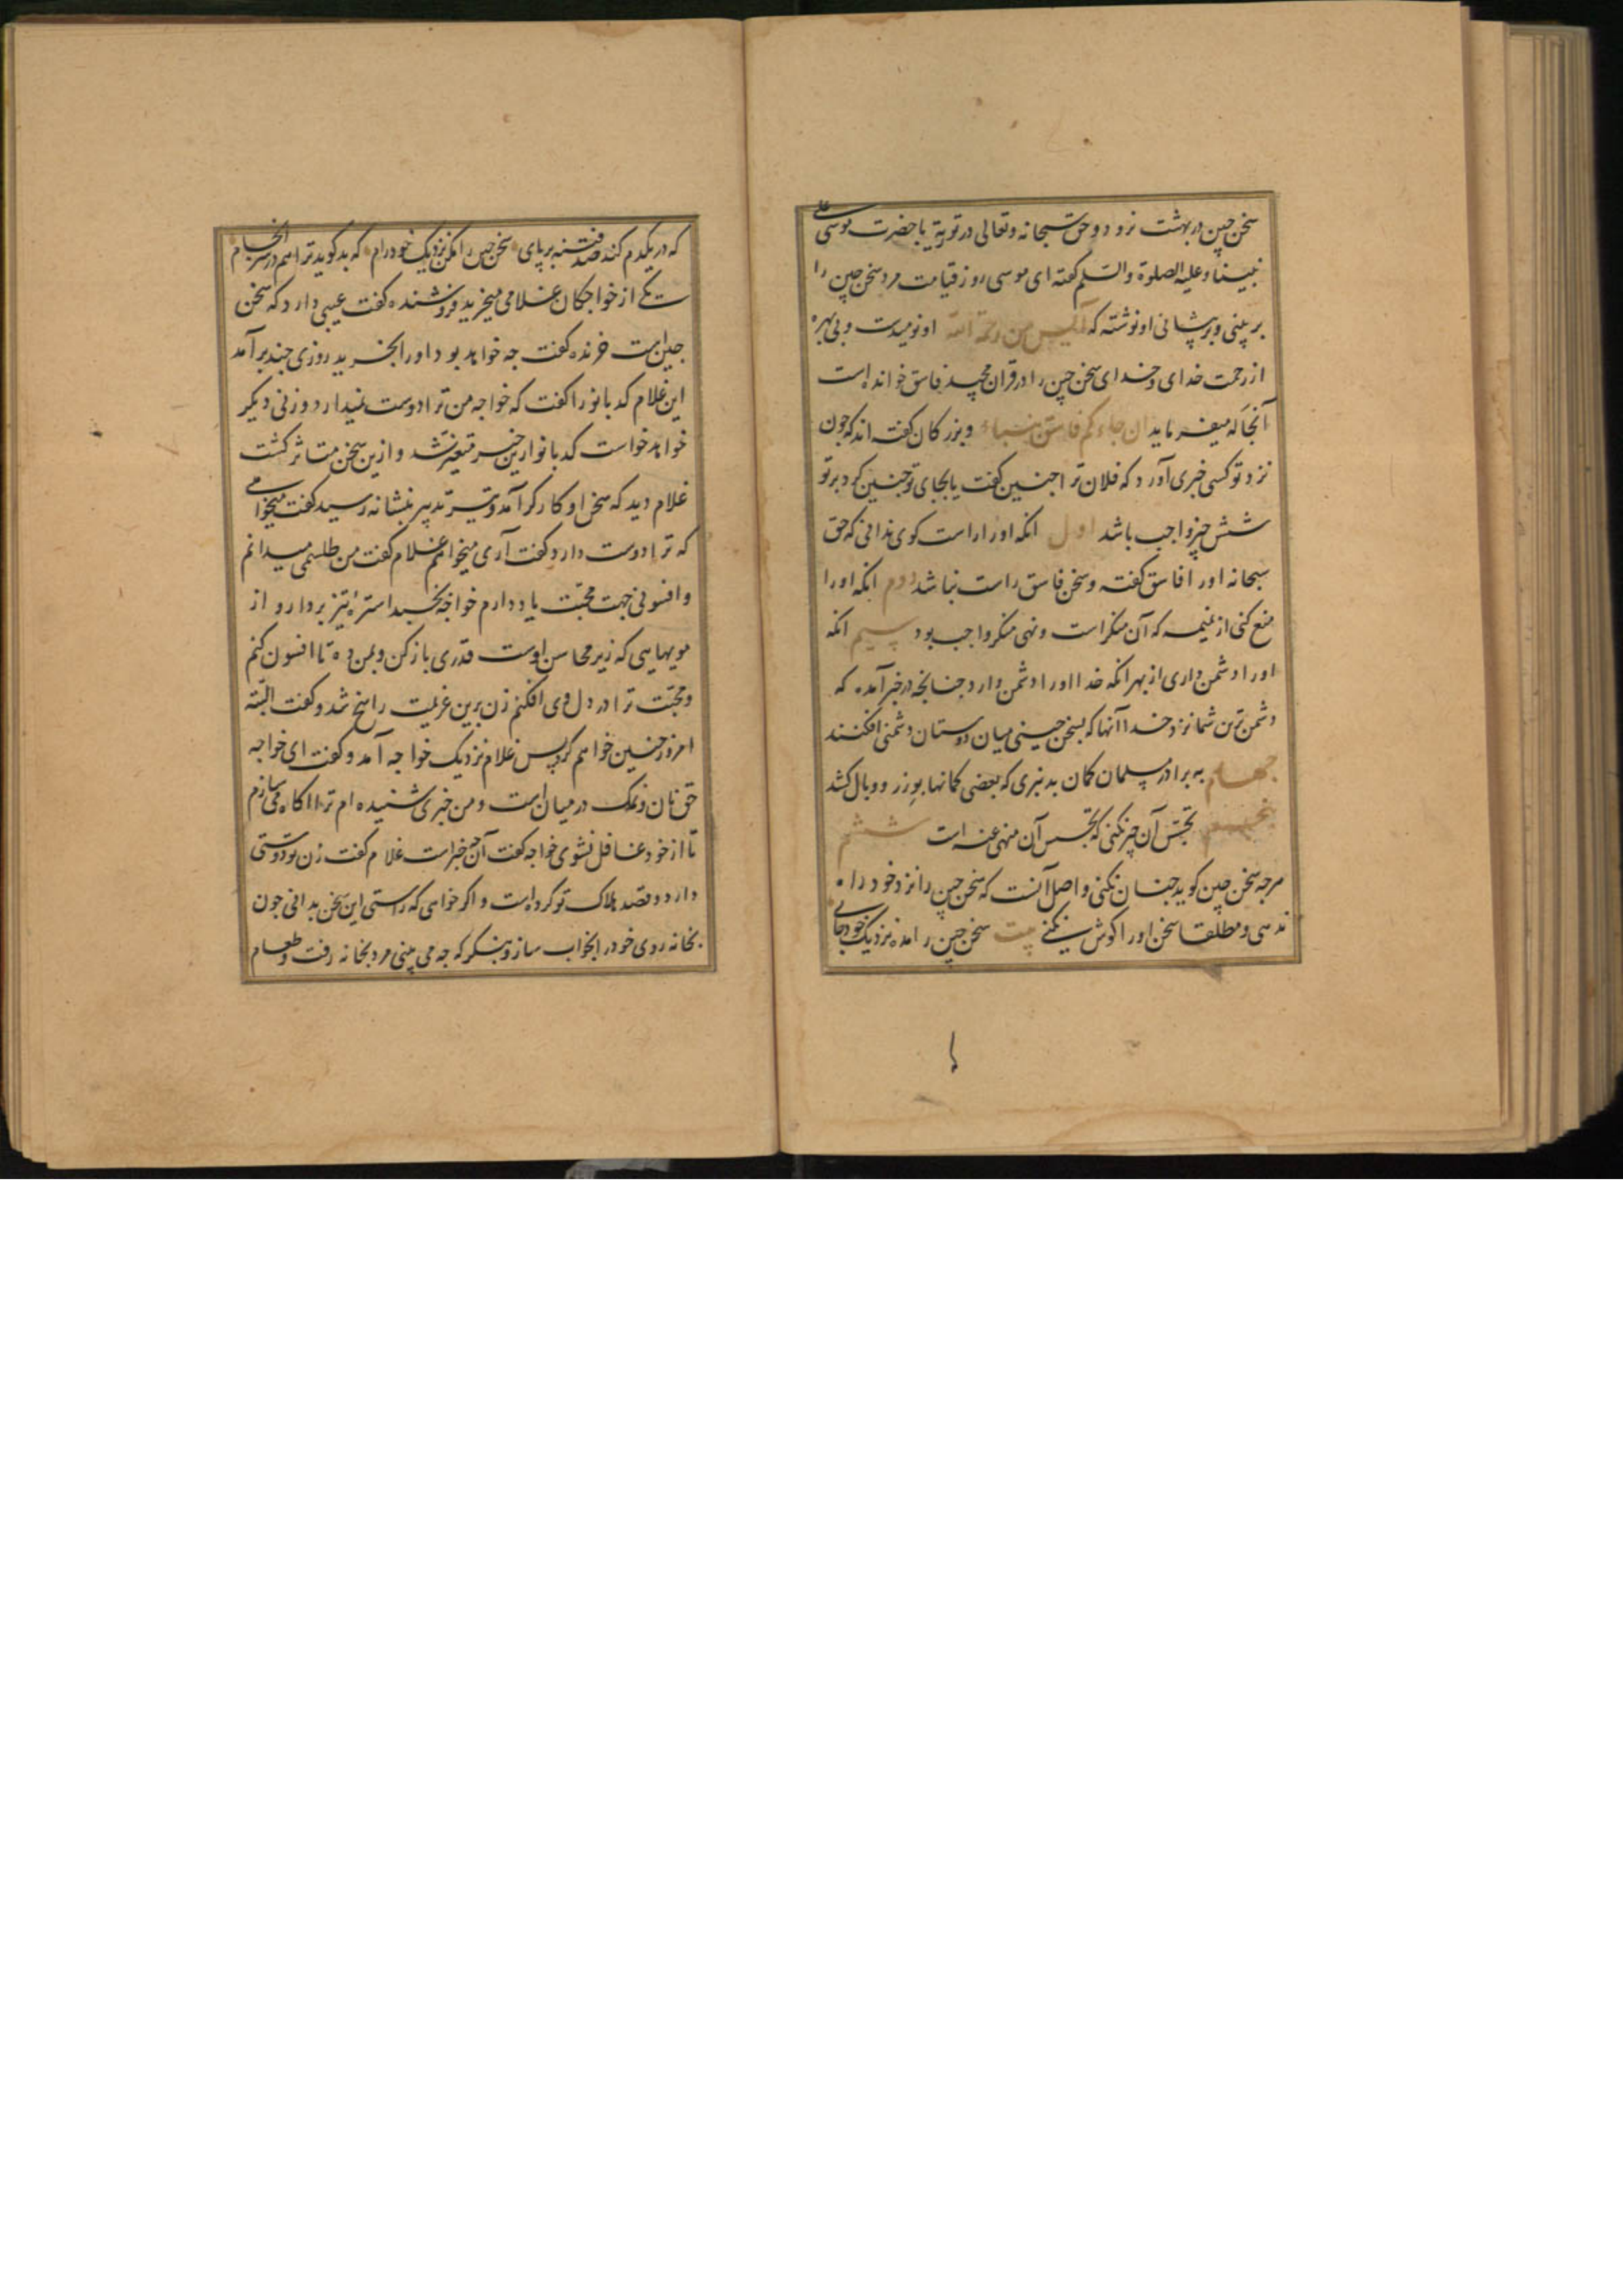 سخن چین در بهشت نرود و حق سبحانه و تعالی در توریة با حضرت موسی علی
نبینا و علیه الصلوة والسلم گفته ای موسی روز قیامت مرد سخن چین را
بر پیشانی او نوشته که آیس من رحمة الله او نومیدست و بی بهره
از رحمت خدای و خدای سخن چین را در قران مجید فاسق خوانده است
آنجا که میفرماید ان جاءکم فاسق بنباء و بزرکان گفته اند که چون
نزد تو کسی خبری آورد که فلان ترا چنین گفت یا بجای تو چنین کرد بر تو
شش چیز واجب باشد اول انکه او را راست کوی ندانی که حق
سبحانه او را فاسق گفته و سخن فاسق راست نباشد دوم انکه او را
منع کنی از نمیمه که آن منکر است و نهی منکر واجب بود سیم انکه
او را دشمن داری از بهر انکه خدا او را دشمن دارد چنانچه در خبر آمده که
دشمن ترین شما نزد خدا آنها که بسخن چینی میان دوستان دشمنی افکنند
چهارم به برادر مسلمان کمان بد نبری که بعضی کمانها بوزر و وبال کشد
پنجم تجسس آن چیز نکنی که تجسس آن منهی عنه است ششم
هرچه سخن چین کوید چنان نکنی و اصل آنست که سخن چین را نزد خود راه
ندهی و مطلقا سخن او را کوش نکنی بیت سخن چین را مده نزدیک خود جای
که در یکدم کند صد فتنه بر پای سخن چین را مکن نزدیک خود رام که بد کوید ترا هم در سر انجام
یکی از خواجکان غلامی میخرید فروشنده گفت عیبی دارد که سخن
چین است خرنده گفت چه خواهد بود او را بخرید روزی چند بر آمد
این غلام کدبانو را گفت که خواجه من ترا دوست نمیدارد و زنی دیکر
خواهد خواست کدبانو ازین خبر متغیر شد و ازین سخن متاثر کشت
غلام دید که سخن او کارکر آمد و تیر تدبیر بنشانه رسید گفت میخواهی
که ترا دوست دارد گفت آری میخواهم غلام گفت من طلسمی میدانم
و افسونی جهت محبت یاد دارم خواجه بخسبد استره تیز بردار و از
مویهایی که زیر محاسن اوست قدری باز کن و بمن ده تا افسون کنم
و محبت ترا در دل وی افکنم زن برین عزیمت راسخ شد و گفت البته
امروز چنین خواهم کرد پس غلام نزدیک خواجه آمد و گفت ای خواجه
حق نان و نمک در میان است و من خبری شنیده ام ترا اکاه می سازم
تا از خود غافل نشوی خواجه گفت آن چه خبر است غلام گفت زن تو دوستی
دارد و قصد هلاک تو کرده است و اکر خواهی که راستی این سخن بدانی چون
بخانه روی خود را بخواب ساز و بنکر که چه می بینی مرد بخانه رفت و طعام